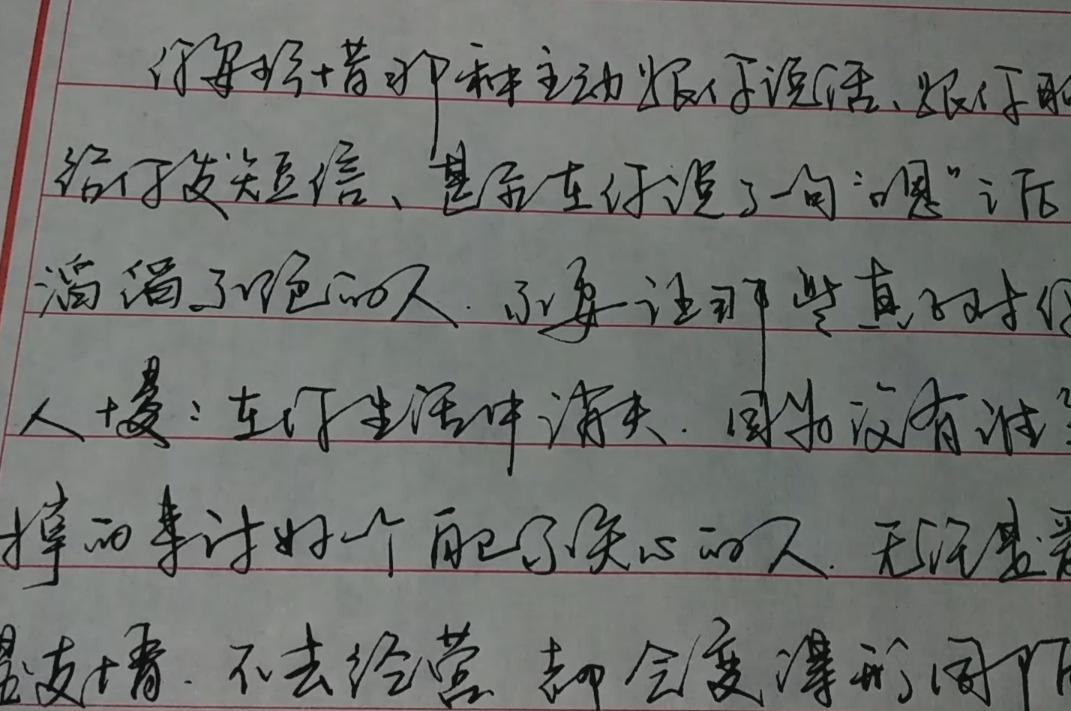 你要珍惜那种主动跟你说话、跟你
给你发短信、甚至在你说了一句“嗯”之后
滔滔不绝的人.不要让那些真的对你
人慢慢在你生活中消失.因为没有谁
掉的来讨好一个能已不关心的人.无论是爱
是友情.不去经营都会变得形同陌